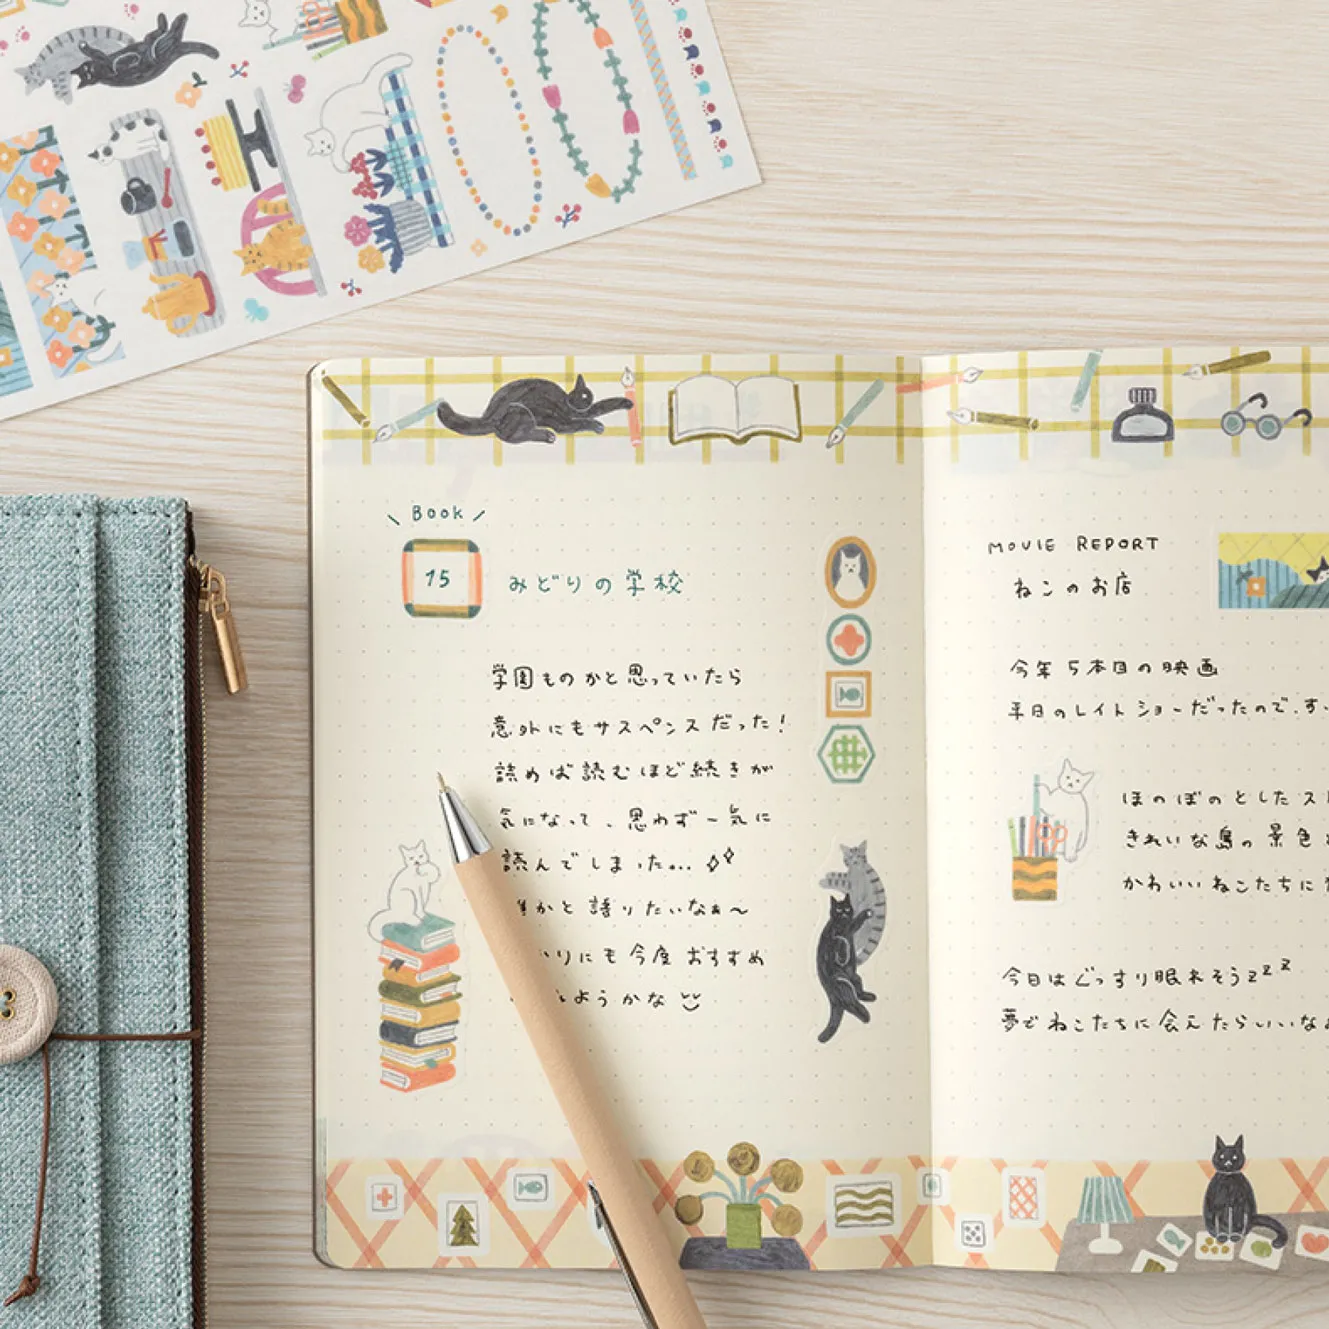 Book
15
みどりの学校
学園ものかと思っていたら
意外にもサスペンスだった!
読めば読むほど続きが
気になって、思わず一気に
読んでしまった...
かと語りたいなぁ〜
りにも今度おすすめ
ようかな
MOVIE REPORT
ねこのお店
今年5本目の映画
平日のレイトショーだったので、す
ほのぼのとしたス
きれいな島の景色
かわいいねこたちに
今日はぐっすり眠れそうzzz
夢でねこたちに会えたらいいな